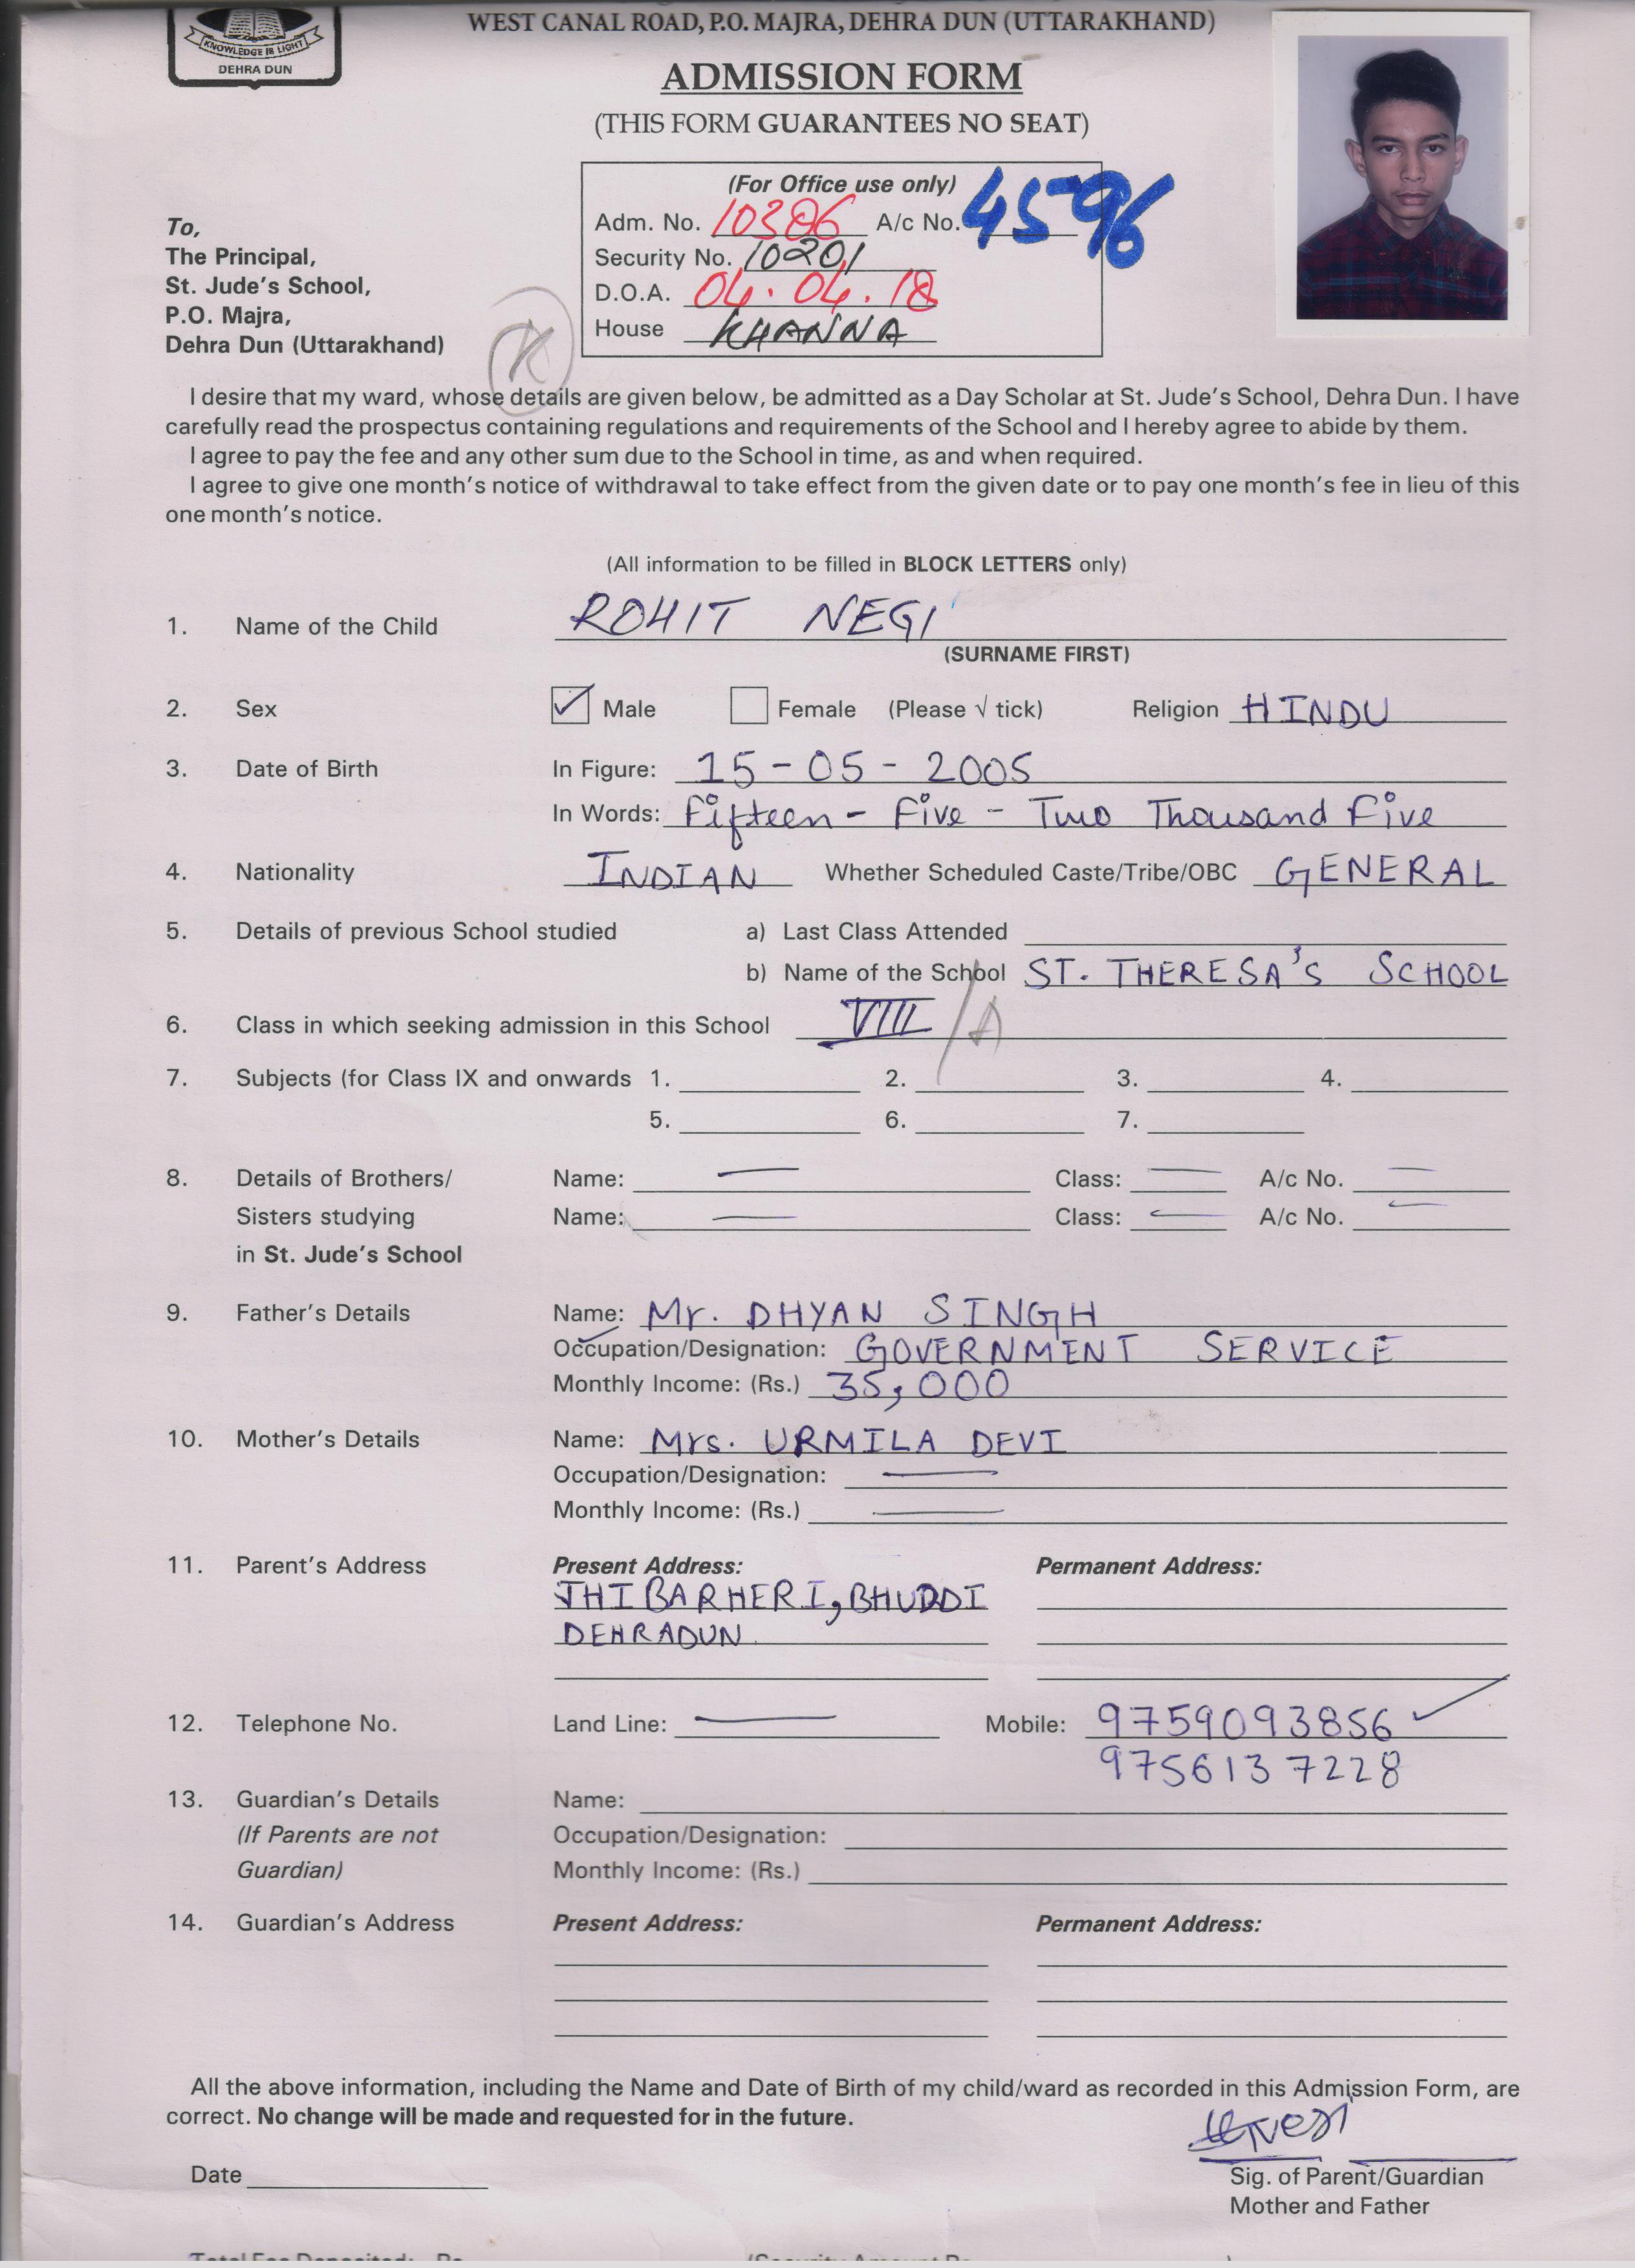 KNOWLEDGE IS LIGHT
DEHRA DUN
WEST CANAL ROAD, P.O. MAJRA, DEHRA DUN (UTTARAKHAND)
ADMISSION FORM
(THIS FORM GUARANTEES NO SEAT)
(For Office use only)
Adm. No. 10386 A/c No. 4596
Security No. 10201
D.O.A. 04.04.18
House KHANNA
To,
The Principal,
St. Jude's School,
P.O. Majra,
Dehra Dun (Uttarakhand)
K
I desire that my ward, whose details are given below, be admitted as a Day Scholar at St. Jude's School, Dehra Dun. I have
carefully read the prospectus containing regulations and requirements of the School and I hereby agree to abide by them.
I agree to pay the fee and any other sum due to the School in time, as and when required.
I agree to give one month's notice of withdrawal to take effect from the given date or to pay one month's fee in lieu of this
one month's notice.
(All information to be filled in BLOCK LETTERS only)
1. Name of the Child ROHIT NEGI
(SURNAME FIRST)
2. Sex ✓ Male Female (Please √ tick) Religion HINDU
3. Date of Birth In Figure: 15-05-2005
In Words: Fifteen - Five - Two Thousand Five
4. Nationality INDIAN Whether Scheduled Caste/Tribe/OBC GENERAL
5. Details of previous School studied a) Last Class Attended
b) Name of the School ST. THERESA'S SCHOOL
6. Class in which seeking admission in this School VIII /A
7. Subjects (for Class IX and onwards 1. 2. 3. 4.
5. 6. 7.
8. Details of Brothers/ Name: — Class: — A/c No. —
Sisters studying Name: — Class: — A/c No. —
in St. Jude's School
9. Father's Details Name: Mr. DHYAN SINGH
Occupation/Designation: GOVERNMENT SERVICE
Monthly Income: (Rs.) 35,000
10. Mother's Details Name: Mrs. URMILA DEVI
Occupation/Designation: —
Monthly Income: (Rs.) —
11. Parent's Address Present Address: Permanent Address:
JHIBARHERI, BHUDDI
DEHRADUN
12. Telephone No. Land Line: — Mobile: 9759093856 ✓
9756137228
13. Guardian's Details Name:
(If Parents are not Occupation/Designation:
Guardian) Monthly Income: (Rs.)
14. Guardian's Address Present Address: Permanent Address:
All the above information, including the Name and Date of Birth of my child/ward as recorded in this Admission Form, are
correct. No change will be made and requested for in the future.
Date
Sig. of Parent/Guardian
Mother and Father